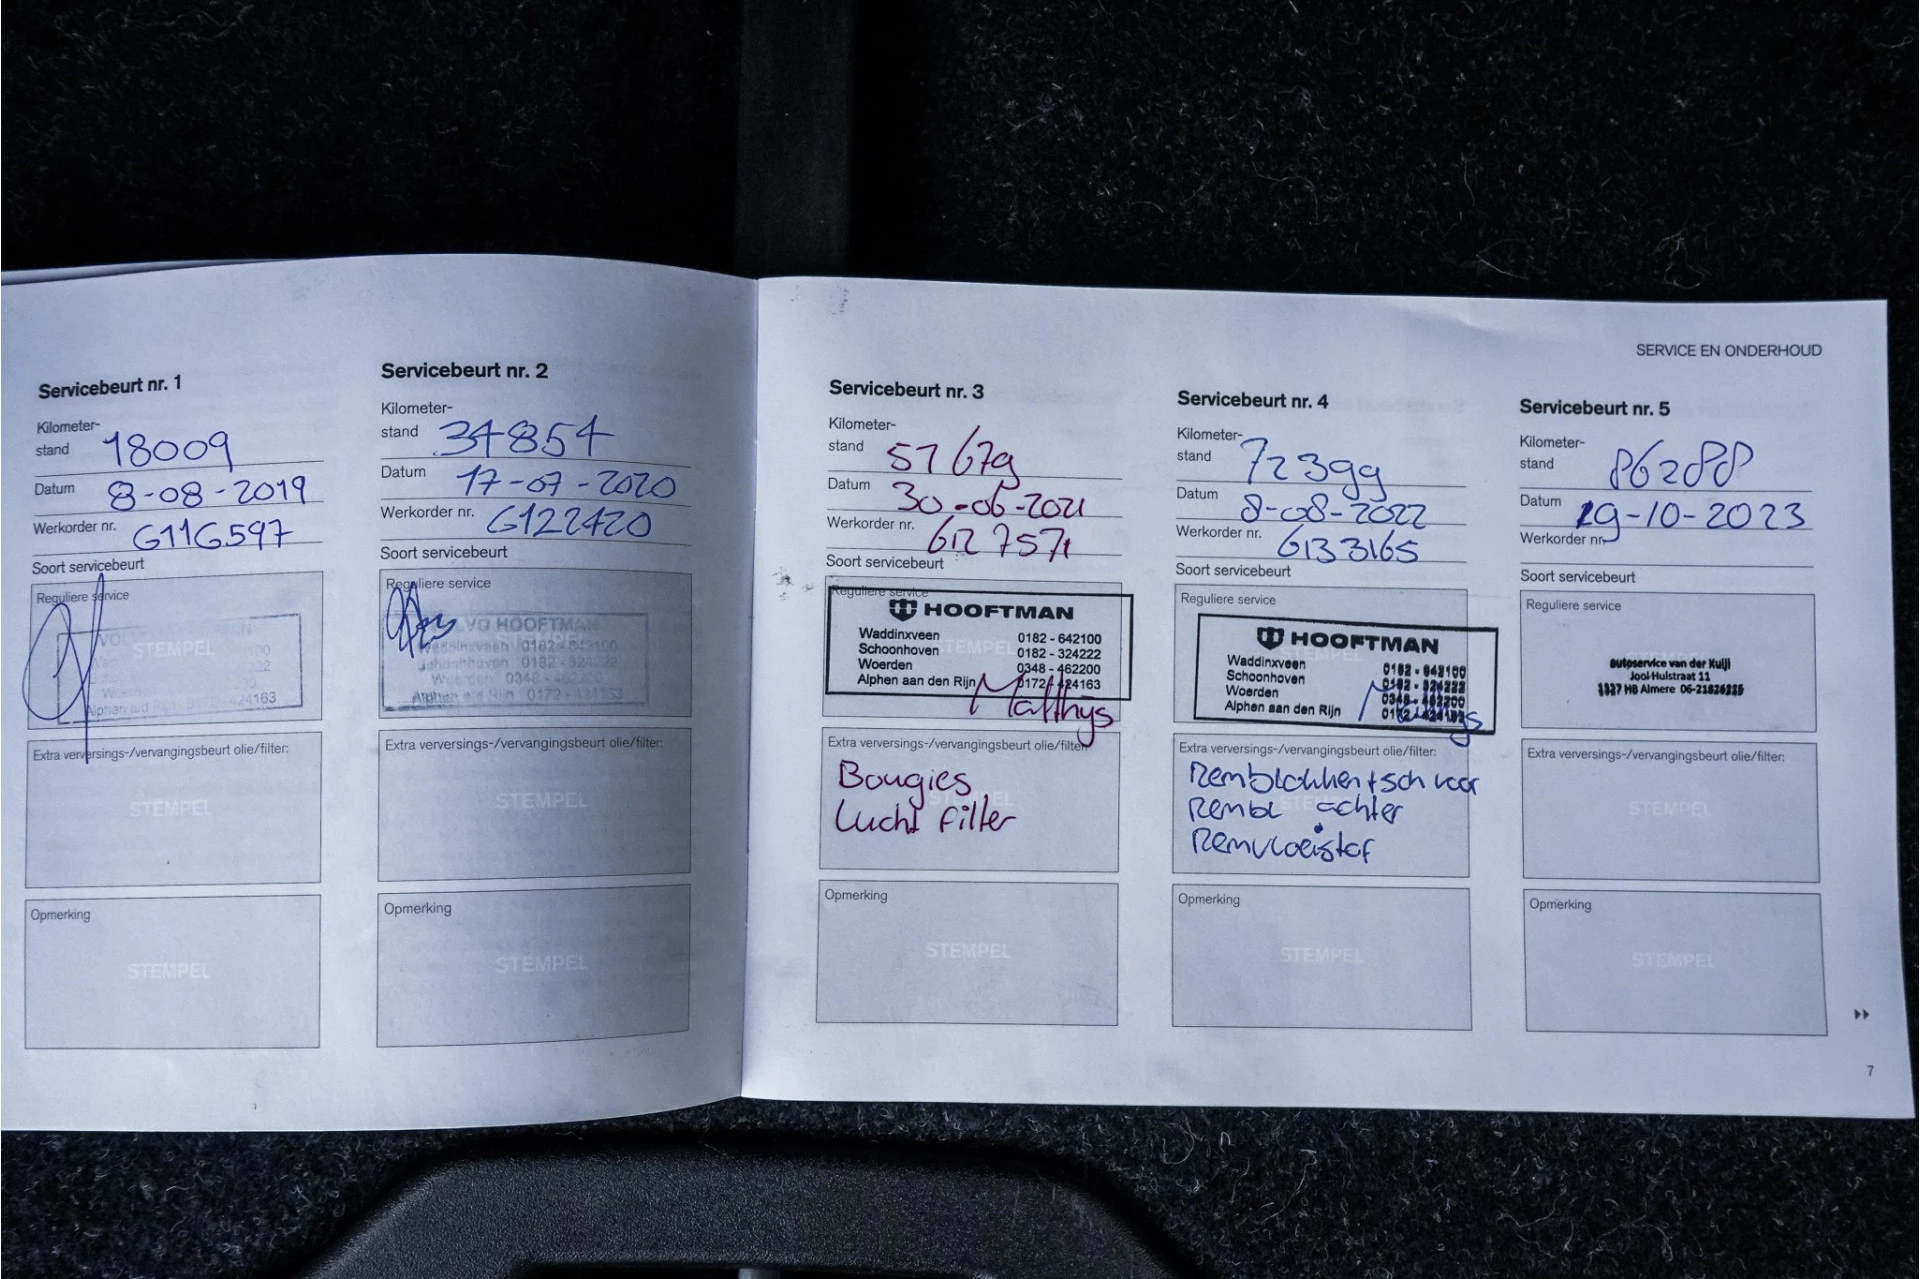 SERVICE EN ONDERHOUD
Servicebeurt nr. 1
Kilometer-
stand 18009
Datum 8-08-2019
Werkorder nr. G116597
Soort servicebeurt
Reguliere service
STEMPEL
Alphen a/d Rijn 0172-424163
Extra verversings-/vervangingsbeurt olie/filter:
STEMPEL
Opmerking
STEMPEL
Servicebeurt nr. 2
Kilometer-
stand 34854
Datum 17-07-2020
Werkorder nr. G122420
Soort servicebeurt
Reguliere service
VO HOOFTMAN
STEMPEL
Waddinxveen 0182-642100
Schoonhoven 0182-324222
Woerden 0348-462200
Alphen a/d Rijn 0172-424163
Extra verversings-/vervangingsbeurt olie/filter:
STEMPEL
Opmerking
STEMPEL
Servicebeurt nr. 3
Kilometer-
stand 51679
Datum 30-06-2021
Werkorder nr. 6127571
Soort servicebeurt
Reguliere service
HOOFTMAN
Waddinxveen 0182 - 642100
Schoonhoven 0182 - 324222
Woerden 0348 - 462200
Alphen aan den Rijn 0172 - 424163
Matthys
Extra verversings-/vervangingsbeurt olie/filter:
Bougies
Lucht filter
Opmerking
STEMPEL
Servicebeurt nr. 4
Kilometer-
stand 72399
Datum 8-08-2022
Werkorder nr. 6133165
Soort servicebeurt
Reguliere service
HOOFTMAN
Waddinxveen 0182 - 642100
Schoonhoven 0182 - 324222
Woerden 0348 - 462200
Alphen aan den Rijn 0172 - 424163
Extra verversings-/vervangingsbeurt olie/filter:
Remblokken+sch voor
Rembl achter
Remvloeistof
Opmerking
STEMPEL
Servicebeurt nr. 5
Kilometer-
stand 86288
Datum 19-10-2023
Werkorder nr.
Soort servicebeurt
Reguliere service
autoservice van der Kuijl
Jool-Hulstraat 11
1327 HB Almere 06-21826225
Extra verversings-/vervangingsbeurt olie/filter:
STEMPEL
Opmerking
STEMPEL
7